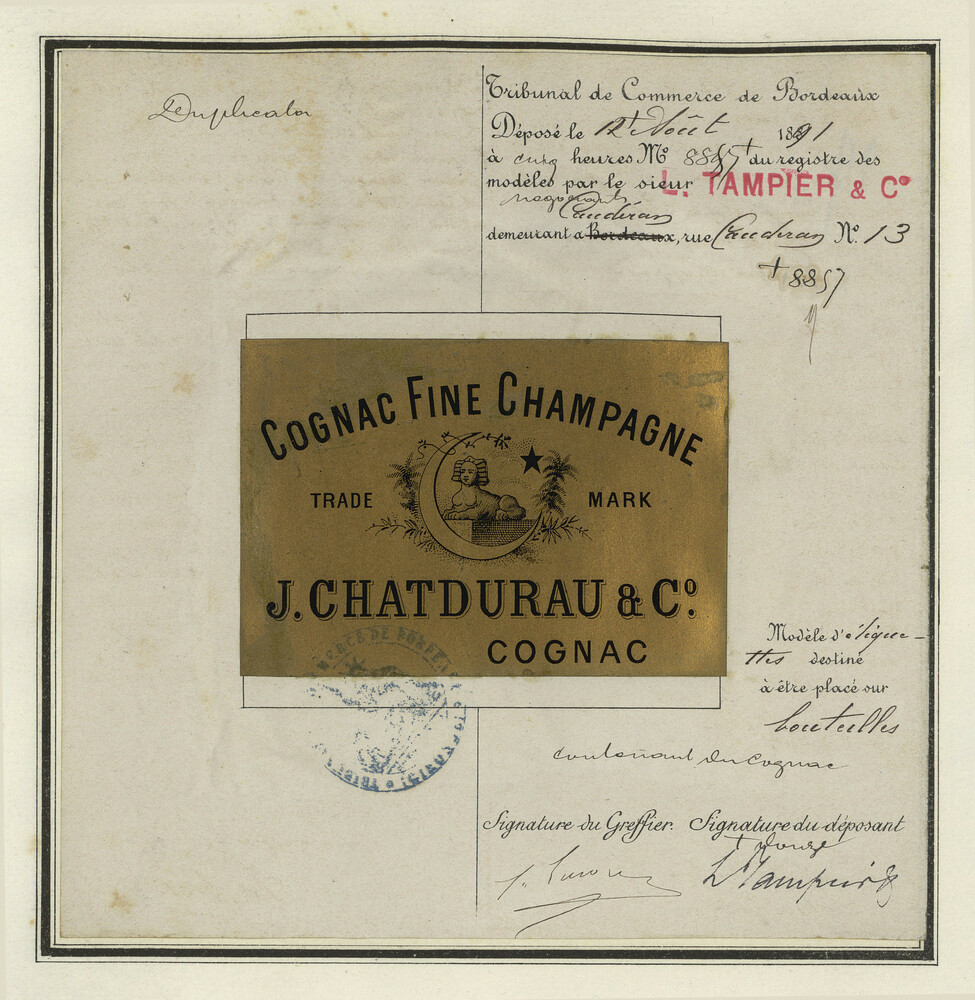 Duplicata
Tribunal de Commerce de Bordeaux
Déposé le 12† Août 1891
à cinq heures No 8857 † du registre des
modèles par le sieur L. TAMPIER & Co
négociants
Caudéran
demeurant à Bordeaux, rue Caudéran No. 13
† 8857
COGNAC FINE CHAMPAGNE
TRADE MARK
J. CHATDURAU & Co.
COGNAC
Modèle d'étique-
ttes destiné
à être placé sur
bouteilles
contenant du Cognac
Signature du Greffier. Signature du déposant
† douze
L Tampier &